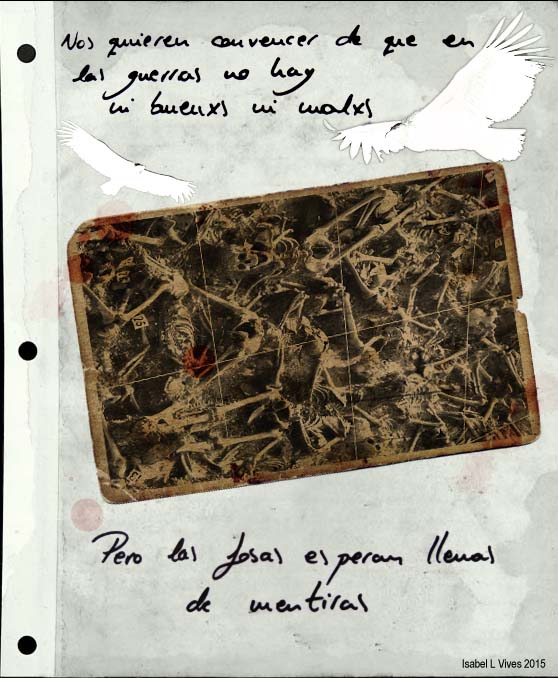 Nos quieren convencer de que en
las guerras no hay
ni buenxs ni malxs
Pero las fosas esperan llenas
de mentiras
Isabel L Vives 2015